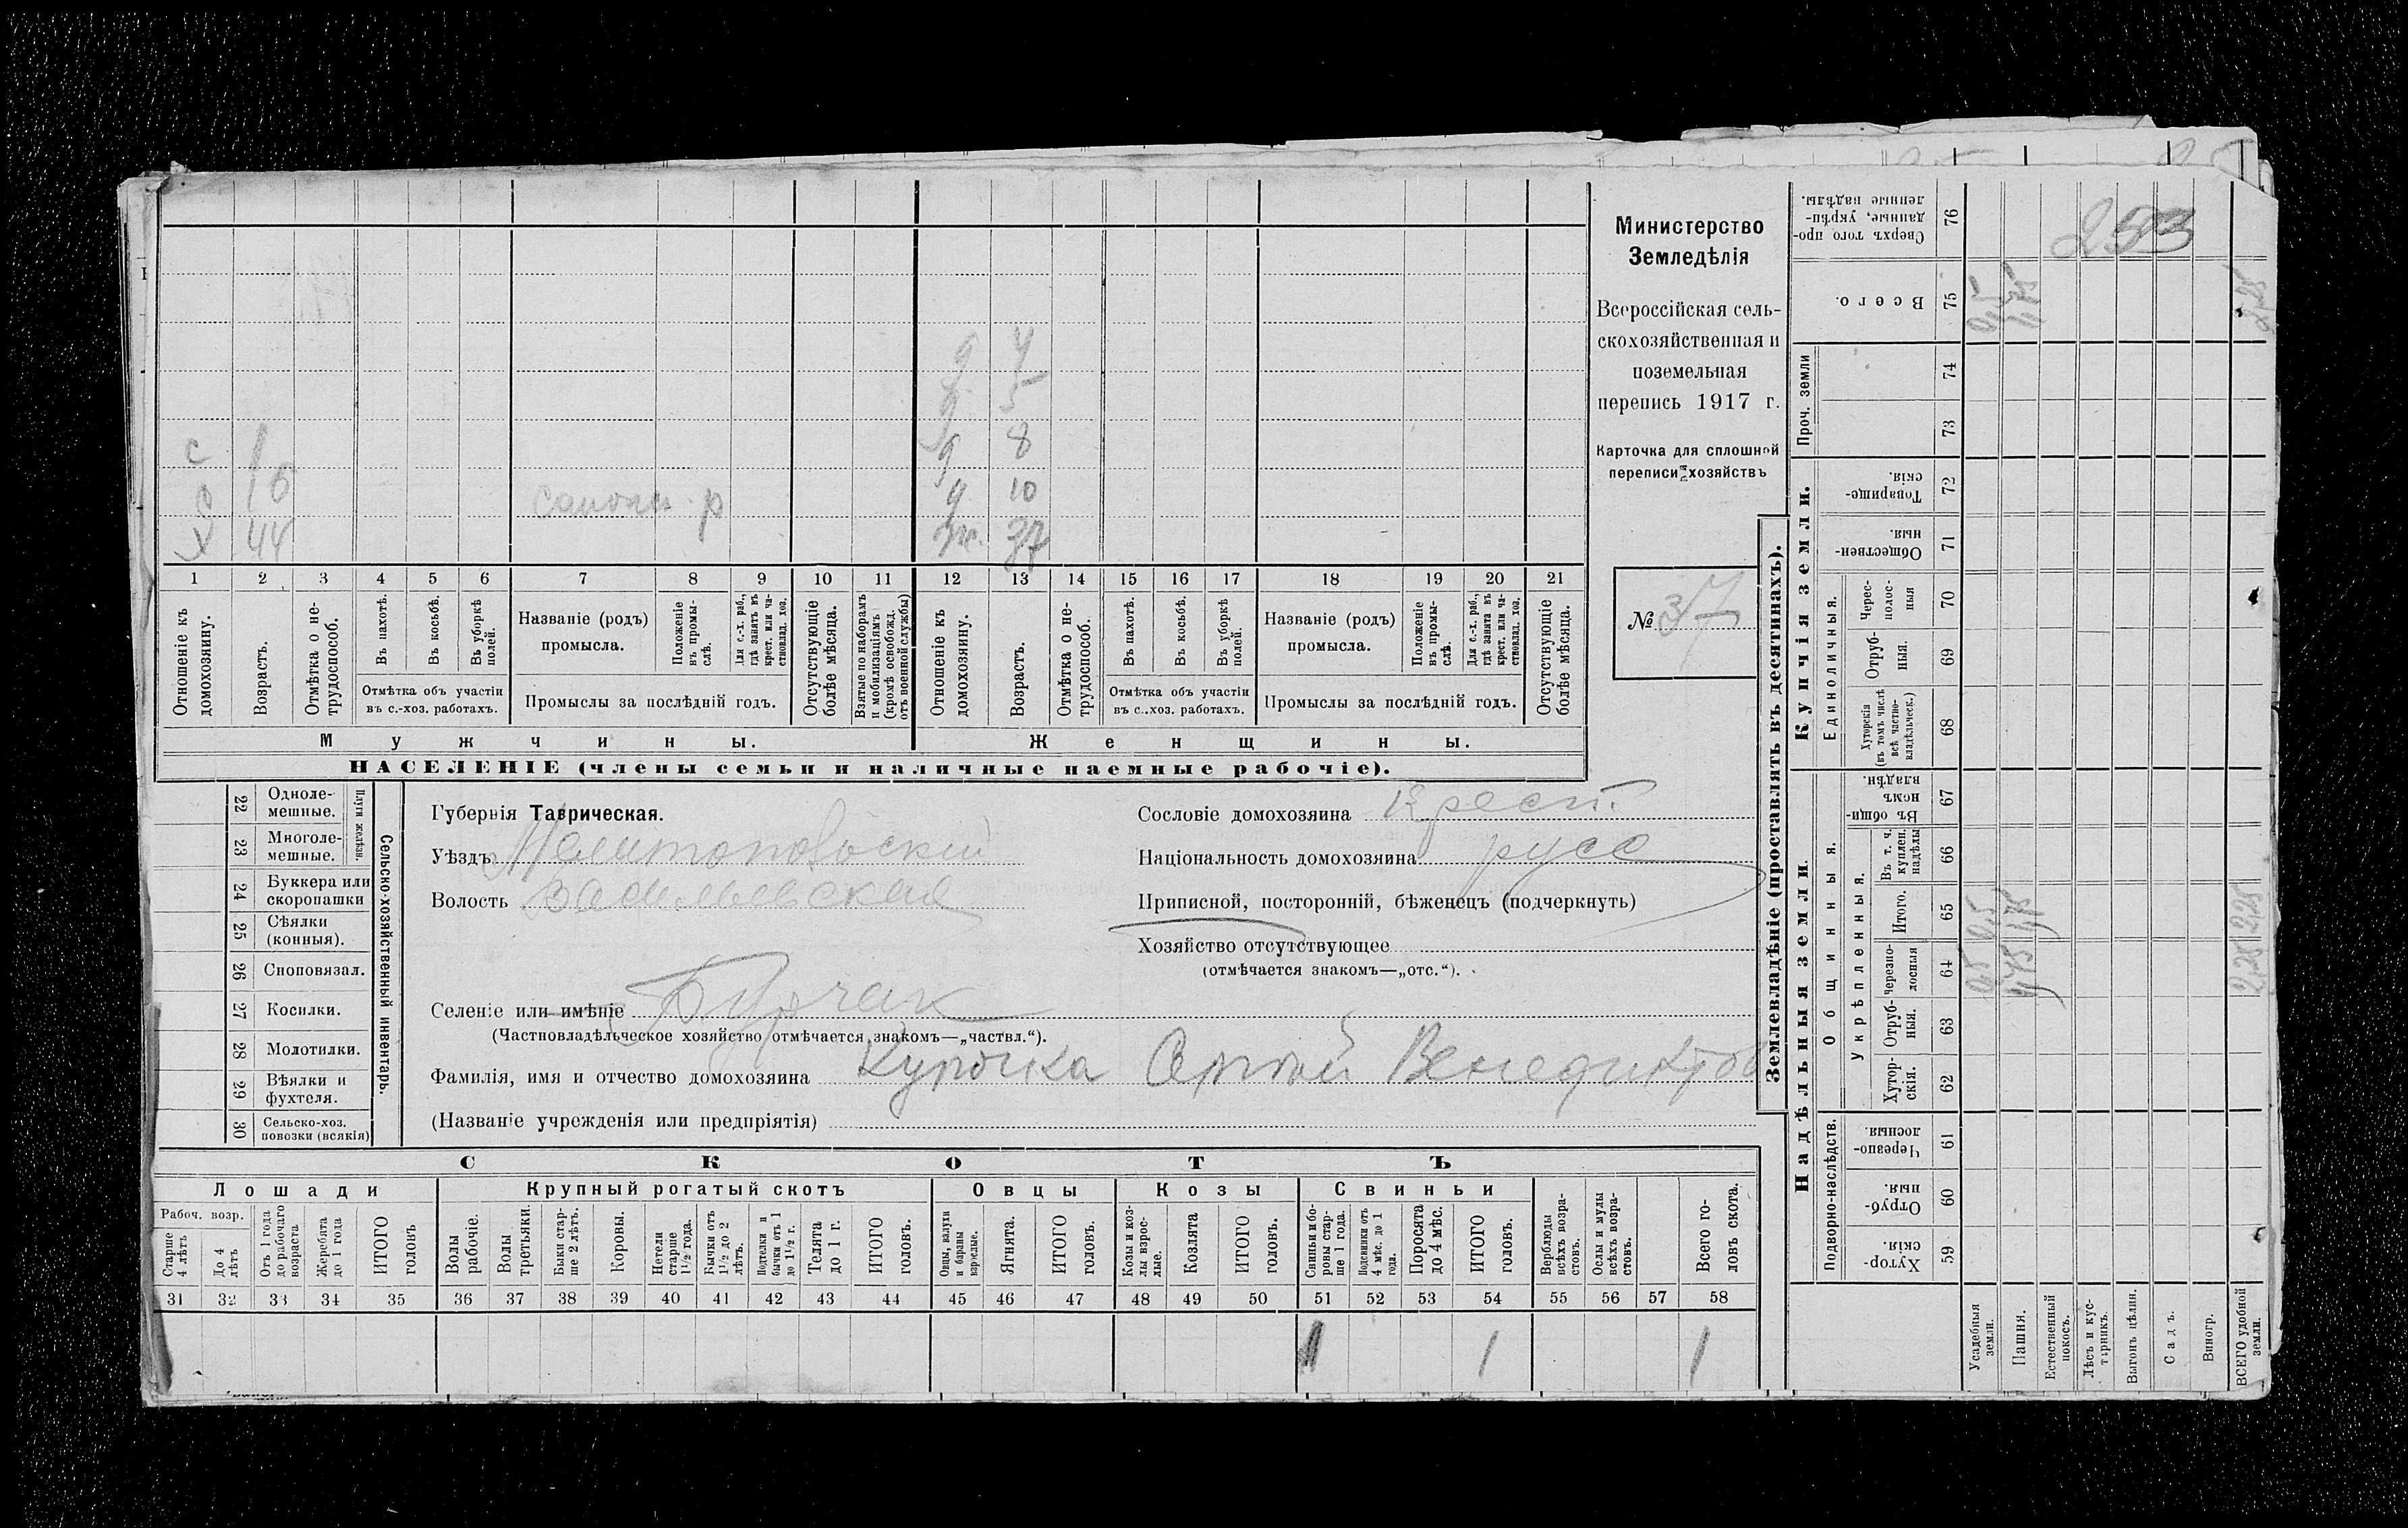 с 1
с 16
х 44
сапожн. р
д 4
д 5
д 8
д 10
ж. 37
1 2 3 4 5 6 7 8 9 10 11 12 13 14 15 16 17 18 19 20 21
Отношеніе къ домохозяину.
Возрастъ.
Отмѣтка о не-трудоспособ.
Въ пахотѣ.
Въ косьбѣ.
Въ уборкѣ полей.
Отмѣтка объ участіи
въ с.-хоз. работахъ.
Названіе (родъ)
промысла.
Положеніе въ промы-слѣ.
Для с.-х. раб., гдѣ занятъ въ крест. или ча-стновлад. хоз.
Промыслы за послѣдній годъ.
Отсутствующіе болѣе мѣсяца.
Взятые по наборамъ и мобилизаціямъ (кромѣ освобожд. отъ военной службы)
Отношеніе къ домохозяину.
Возрастъ.
Отмѣтка о не-трудоспособ.
Въ пахотѣ.
Въ косьбѣ.
Въ уборкѣ полей.
Отмѣтка объ участіи
въ с.-хоз. работахъ.
Названіе (родъ)
промысла.
Положеніе въ промы-слѣ.
Для с.-х. раб., гдѣ занята въ крест. или ча-стновлад. хоз.
Промыслы за послѣдній годъ.
Отсутствующіе болѣе мѣсяца.
Мужчины.
Женщины.
НАСЕЛЕНІЕ (члены семьи и наличные наемные рабочіе).
Министерство
Земледѣлія
Всероссійская сель-
скохозяйственная и
поземельная
перепись 1917 г.
Карточка для сплошной
переписи хозяйствъ
№ 37
22 Одноле-мешные.
23 Многоле-мешные.
Плуги желѣзн.
24 Буккера или скоропашки
25 Сѣялки (конныя).
26 Сноповязал.
27 Косилки.
28 Молотилки.
29 Вѣялки и фухтеля.
30 Сельско-хоз. повозки (всякія)
Сельско-хозяйственный инвентарь.
Губернія Таврическая.
Уѣздъ Мелитопольскій
Волость Васильевская
Сословіе домохозяина Крест.
Національность домохозяина русс
Приписной, посторонній, бѣженецъ (подчеркнуть)
Хозяйство отсутствующее
(отмѣчается знакомъ—„отс.“).
Селеніе или имѣніе Бурчак
(Частновладѣльческое хозяйство отмѣчается знакомъ—„частвл.“).
Фамилія, имя и отчество домохозяина Курочка Венедиктов
(Названіе учрежденія или предпріятія)
СКОТЪ
Лошади
Крупный рогатый скотъ
Овцы
Козы
Свиньи
Рабоч. возр.
Старше 4 лѣтъ
До 4 лѣтъ
Отъ 1 года до рабочаго возраста
Жеребята до 1 года
ИТОГО головъ
Волы рабочіе.
Волы третьяки.
Быки стар-ше 2 лѣтъ.
Коровы.
Нетели старше 1½ года.
Бычки отъ 1½ до 2 лѣтъ.
Подтелки и бычки отъ 1 до 1½ г.
Телята до 1 г.
ИТОГО головъ.
Овцы, валухи и бараны взрослые.
Ягнята.
ИТОГО головъ.
Козы и коз-лы взрос-лые.
Козлята
ИТОГО головъ.
Свиньи и бо-ровы стар-ше 1 года.
Подсвинки отъ 4 мѣс. до 1 года.
Поросята до 4 мѣс.
ИТОГО головъ.
Верблюды всѣхъ возра-стовъ.
Ослы и мулы всѣхъ возра-стовъ.
Всего го-ловъ скота.
31 32 33 34 35 36 37 38 39 40 41 42 43 44 45 46 47 48 49 50 51 52 53 54 55 56 57 58
1 1 1
Землевладѣніе (проставлять въ десятинахъ).
Надѣльныя земли.
Купчія земли.
Проч. земли
Подворно-наслѣдств.
Общинныя.
Укрѣпленныя.
Единоличныя.
Хутор-скія. 59
Отруб-ныя. 60
Черезпо-лосныя. 61
Хутор-скія. 62
Отруб-ныя. 63
Черезпо-лосныя 64
Итого. 65
Въ т. ч. куплен. надѣлы 66
Въ общин-номъ владѣн. 67
Хуторскія (въ томъ числѣ всѣ частно-владѣльческ.) 68
Отруб-ныя. 69
Черес-полос-ныя 70
Обществен-ныя. 71
Товарище-скія. 72
73
74
Всего. 75
Сверхъ того про-данные, укрѣп-ленные надѣлы. 76
253
Усадебныя земли. 0,5 0,5 0,5
Пашня. 1,75 1,75 1,75
Естественный покосъ.
Лѣсъ и кус-тарникъ.
Выгонъ цѣлин.
Садъ.
Виногр.
ВСЕГО удобной земли. 2,25 2,25 2,25